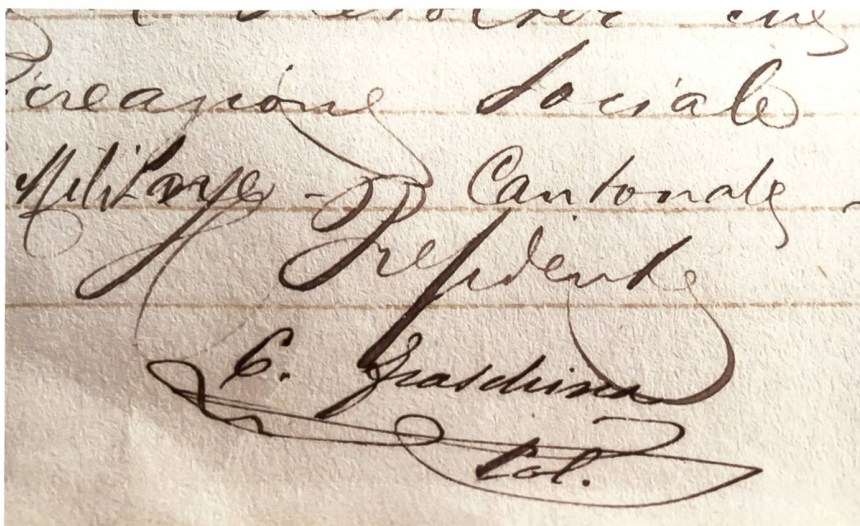 creazione Sociale
Militare - Cantonale -
Il Presidente
C. Fraschina
Col.